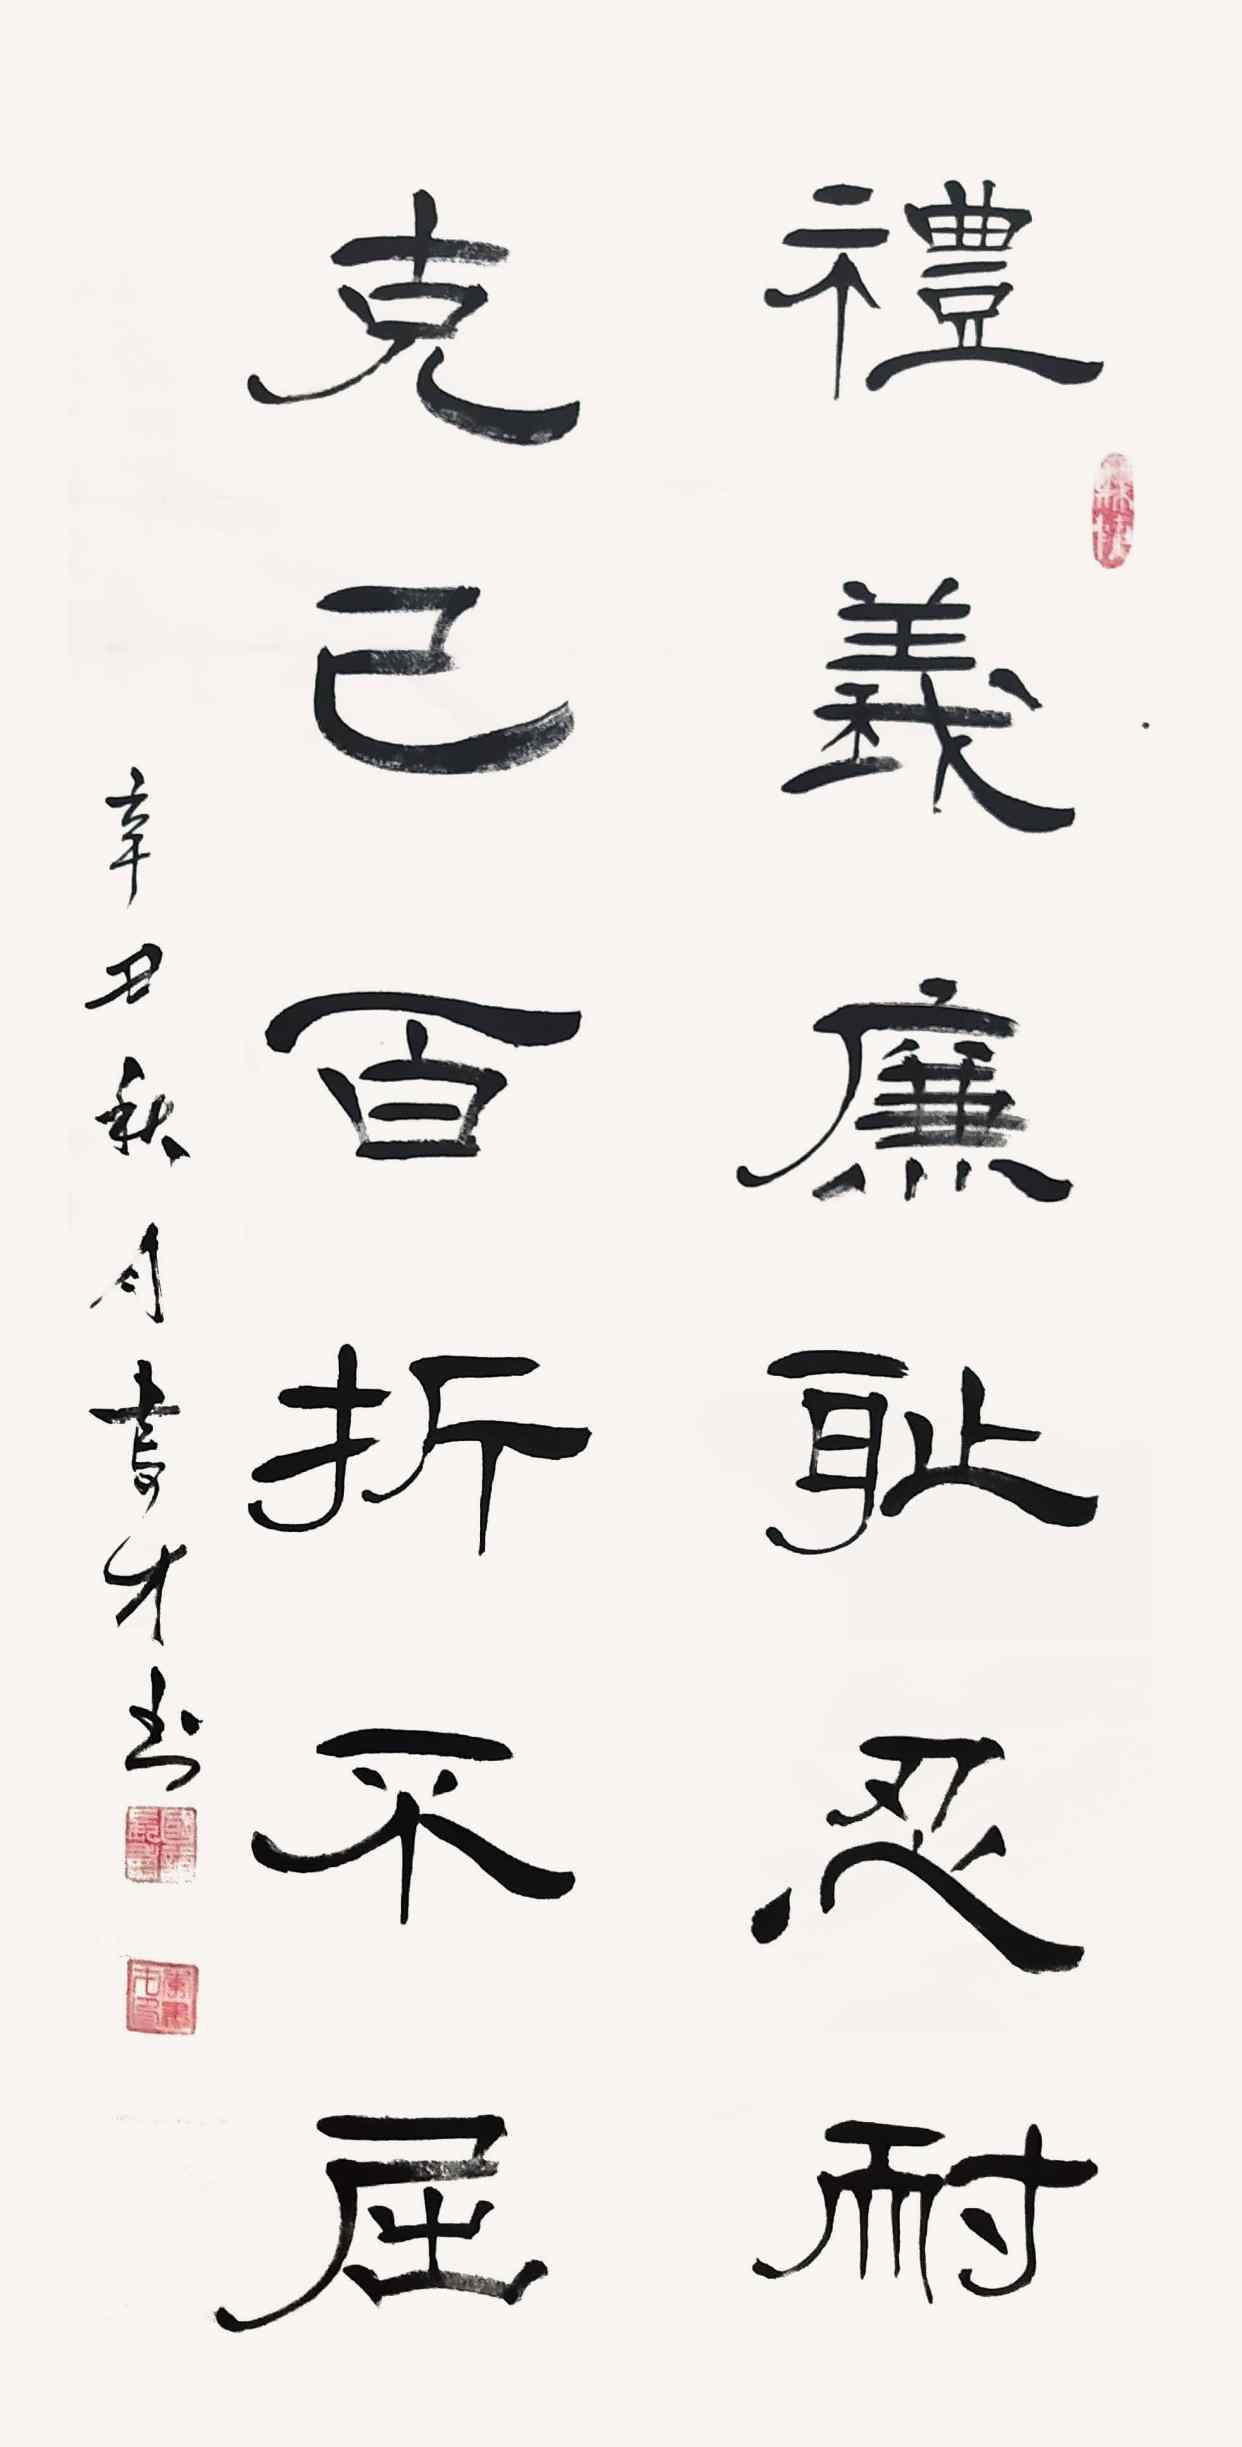 禮義廉耻忍耐
克己百折不屈
辛丑秋月壽才书